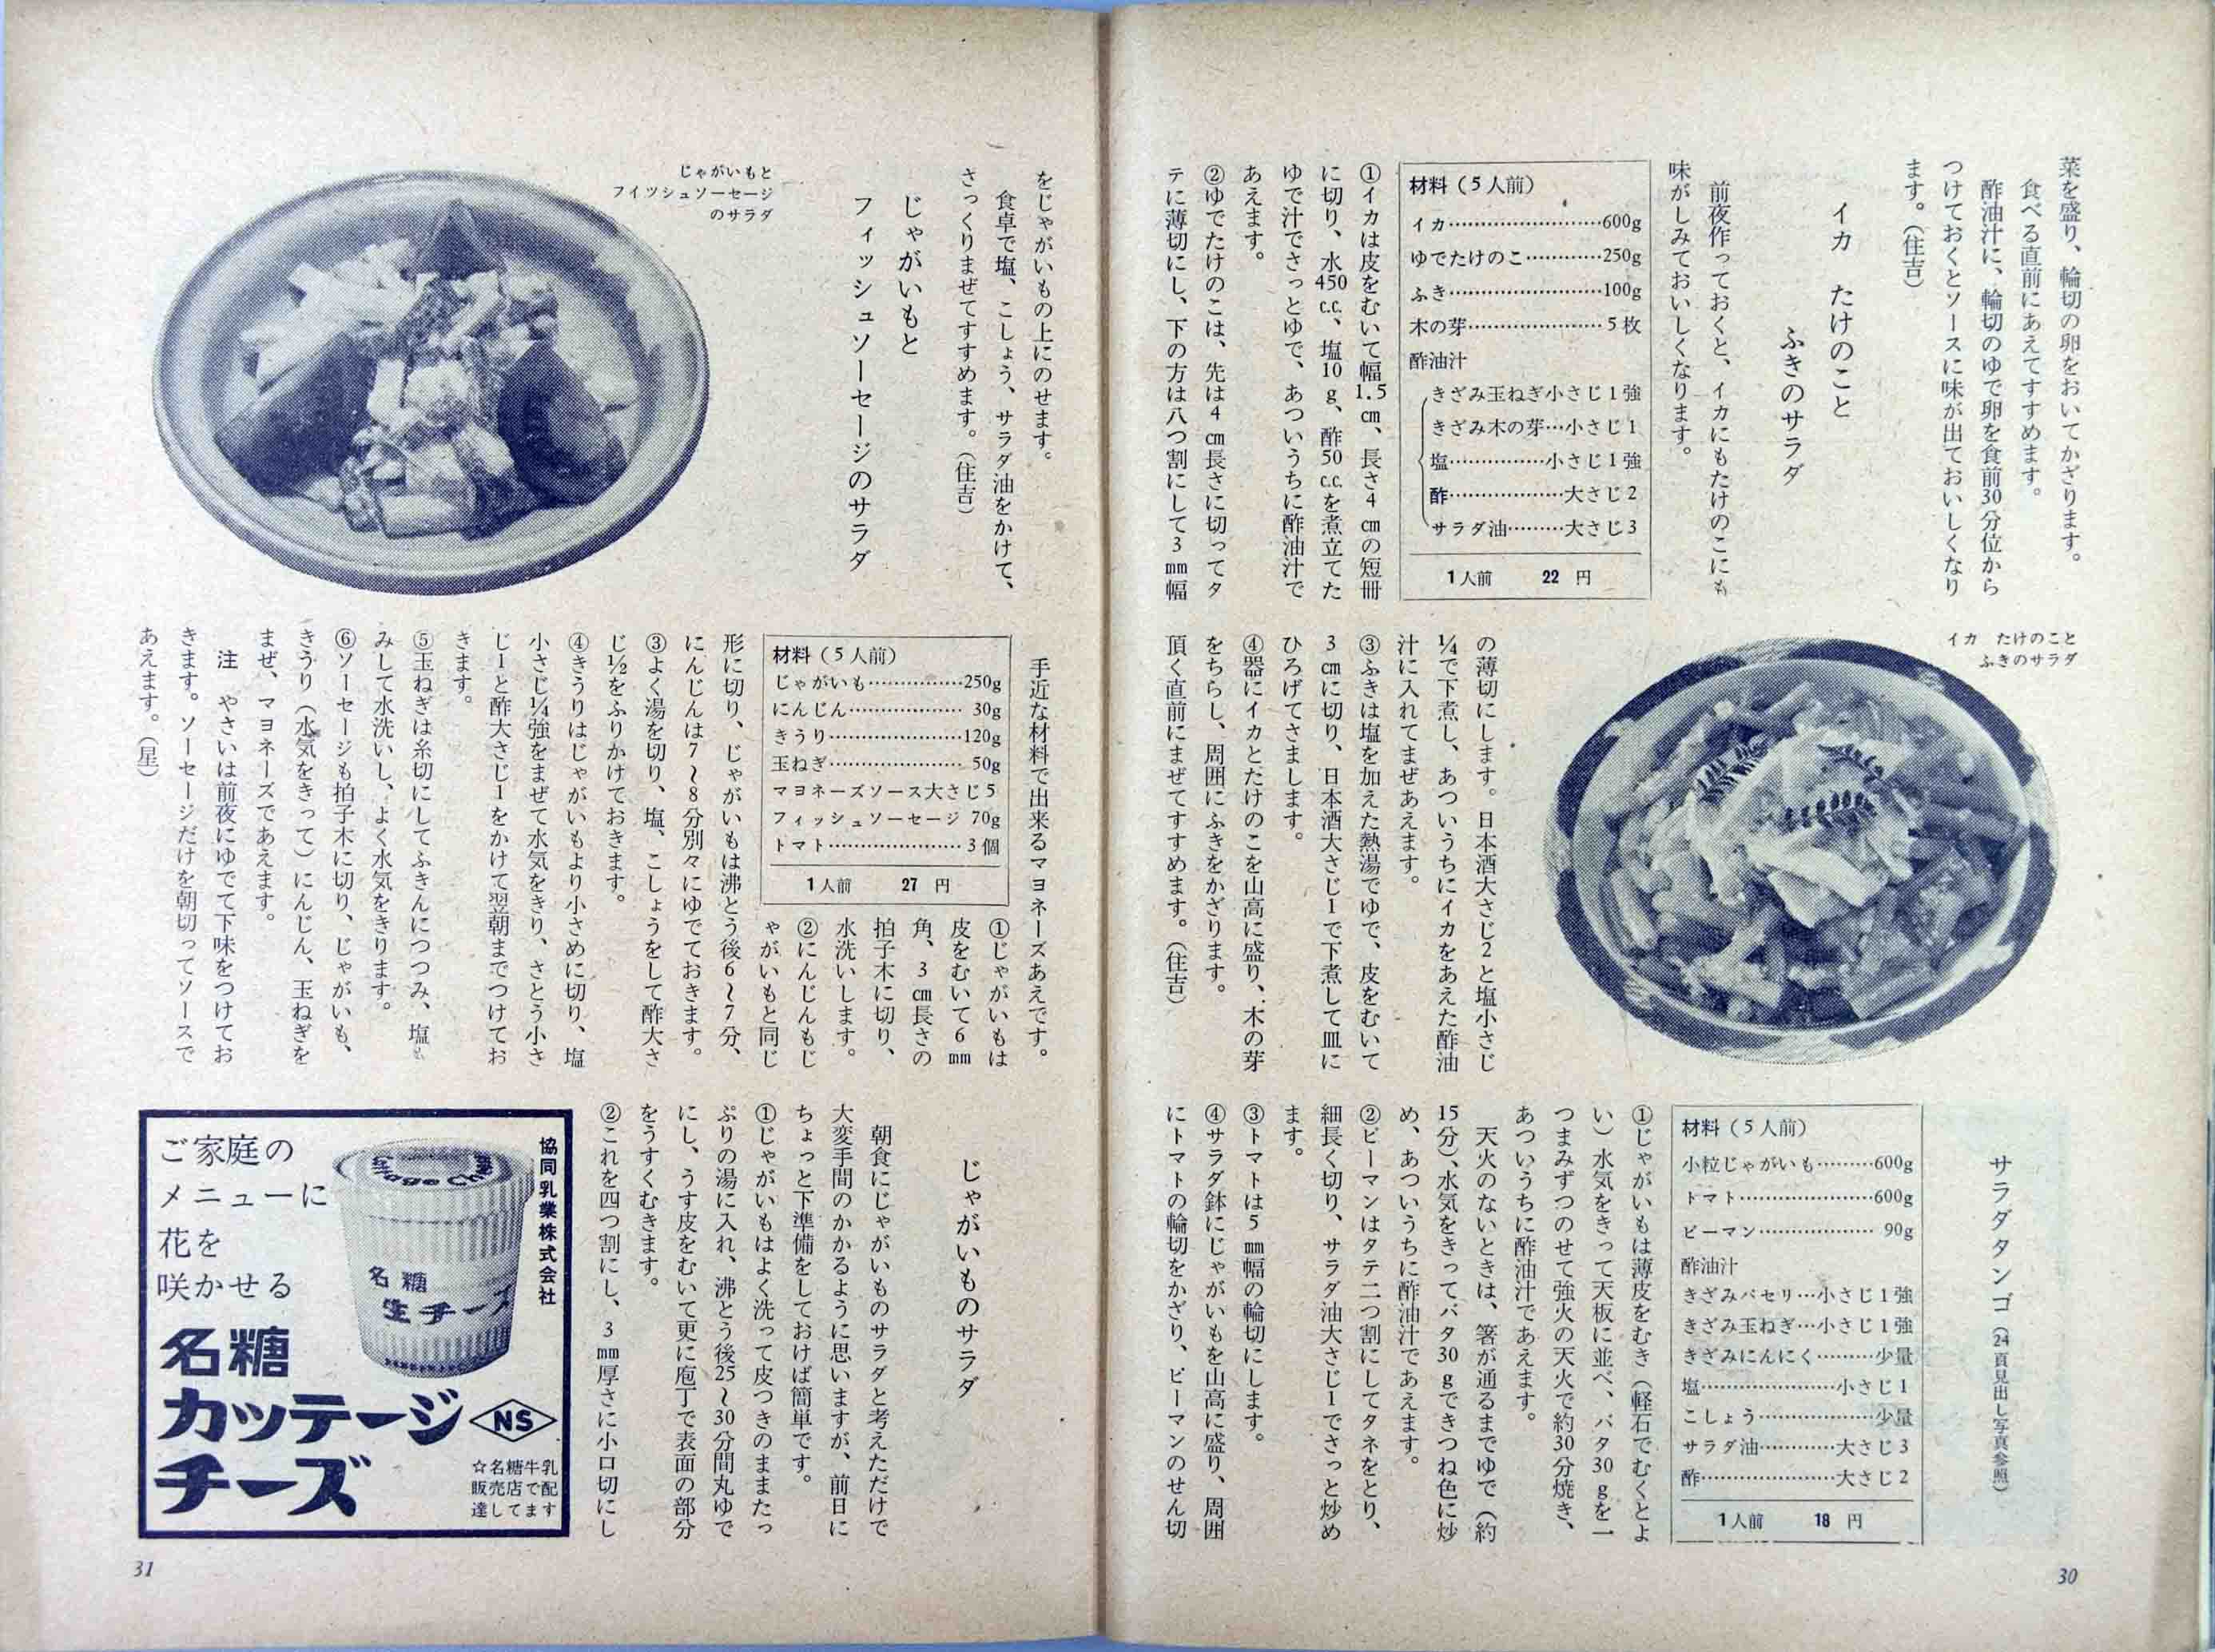 菜を盛り、輪切の卵をおいてかざります。
食べる直前にあえてすすめます。
酢油汁に、輪切のゆで卵を食前30分位から
つけておくとソースに味が出ておいしくなり
ます。（住吉）
イカ たけのこと
ふきのサラダ
前夜作っておくと、イカにもたけのこにも
味がしみておいしくなります。
材料（5人前）
イカ……………………600g
ゆでたけのこ…………250g
ふき……………………100g
木の芽…………………5枚
酢油汁
きざみ玉ねぎ小さじ1強
きざみ木の芽…小さじ1
塩……………小さじ1強
酢………………大さじ2
サラダ油………大さじ3
1人前 22 円
①イカは皮をむいて幅1.5cm、長さ4cmの短冊
に切り、水450c.c.、塩10g、酢50c.c.を煮立てた
ゆで汁でさっとゆで、あついうちに酢油汁で
あえます。
②ゆでたけのこは、先は4cm長さに切ってタ
テに薄切にし、下の方は八つ割にして3mm幅
イカ たけのこと
ふきのサラダ
の薄切にします。日本酒大さじ2と塩小さじ
¼で下煮し、あついうちにイカをあえた酢油
汁に入れてまぜあえます。
③ふきは塩を加えた熱湯でゆで、皮をむいて
3cmに切り、日本酒大さじ1で下煮して皿に
ひろげてさまします。
④器にイカとたけのこを山高に盛り、木の芽
をちらし、周囲にふきをかざります。
頂く直前にまぜてすすめます。（住吉）
サラダタンゴ（24頁見出し写真参照）
材料（5人前）
小粒じゃがいも………600g
トマト…………………600g
ピーマン……………… 90g
酢油汁
きざみパセリ…小さじ1強
きざみ玉ねぎ…小さじ1強
きざみにんにく………少量
塩…………………小さじ1
こしょう………………少量
サラダ油…………大さじ3
酢…………………大さじ2
1人前 18 円
①じゃがいもは薄皮をむき（軽石でむくとよ
い）水気をきって天板に並べ、バタ30gを一
つまみずつのせて強火の天火で約30分焼き、
あついうちに酢油汁であえます。
天火のないときは、箸が通るまでゆで（約
15分）、水気をきってバタ30gできつね色に炒
め、あついうちに酢油汁であえます。
②ピーマンはタテ二つ割にしてタネをとり、
細長く切り、サラダ油大さじ1でさっと炒め
ます。
③トマトは5mm幅の輪切にします。
④サラダ鉢にじゃがいもを山高に盛り、周囲
にトマトの輪切をかざり、ピーマンのせん切
30
をじゃがいもの上にのせます。
食卓で塩、こしょう、サラダ油をかけて、
さっくりまぜてすすめます。（住吉）
じゃがいもと
フィッシュソーセージのサラダ
じゃがいもと
フイツシュソーセージ
のサラダ
手近な材料で出来るマヨネーズあえです。
材料（5人前）
じゃがいも……………250g
にんじん……………… 30g
きうり…………………120g
玉ねぎ………………… 50g
マヨネーズソース大さじ5
フィッシュソーセージ 70g
トマト…………………3個
1人前 27 円
①じゃがいもは
皮をむいて6mm
角、3cm長さの
拍子木に切り、
水洗いします。
②にんじんもじ
ゃがいもと同じ
形に切り、じゃがいもは沸とう後6〜7分、
にんじんは7〜8分別々にゆでておきます。
③よく湯を切り、塩、こしょうをして酢大さ
じ½をふりかけておきます。
④きうりはじゃがいもより小さめに切り、塩
小さじ¼強をまぜて水気をきり、さとう小さ
じ1と酢大さじ1をかけて翌朝までつけてお
きます。
⑤玉ねぎは糸切にしてふきんにつつみ、塩も
みして水洗いし、よく水気をきります。
⑥ソーセージも拍子木に切り、じゃがいも、
きうり（水気をきって）にんじん、玉ねぎを
まぜ、マヨネーズであえます。
注 やさいは前夜にゆでて下味をつけてお
きます。ソーセージだけを朝切ってソースで
あえます。（星）
じゃがいものサラダ
朝食にじゃがいものサラダと考えただけで
大変手間のかかるように思いますが、前日に
ちょっと下準備をしておけば簡単です。
①じゃがいもはよく洗って皮つきのままたっ
ぷりの湯に入れ、沸とう後25〜30分間丸ゆで
にし、うす皮をむいて更に庖丁で表面の部分
をうすくむきます。
②これを四つ割にし、3mm厚さに小口切にし
協同乳業株式会社
名糖
生チーズ
ご家庭の
メニューに
花を
咲かせる
名糖
カッテージ
チーズ
NS
☆名糖牛乳
販売店で配
達してます
31